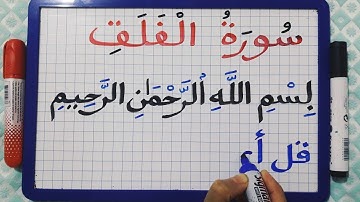 سُورَةُ الْفَلَقِ
بِسْمِ اللَّهِ الرَّحْمَٰنِ الرَّحِيمِ
قل أ